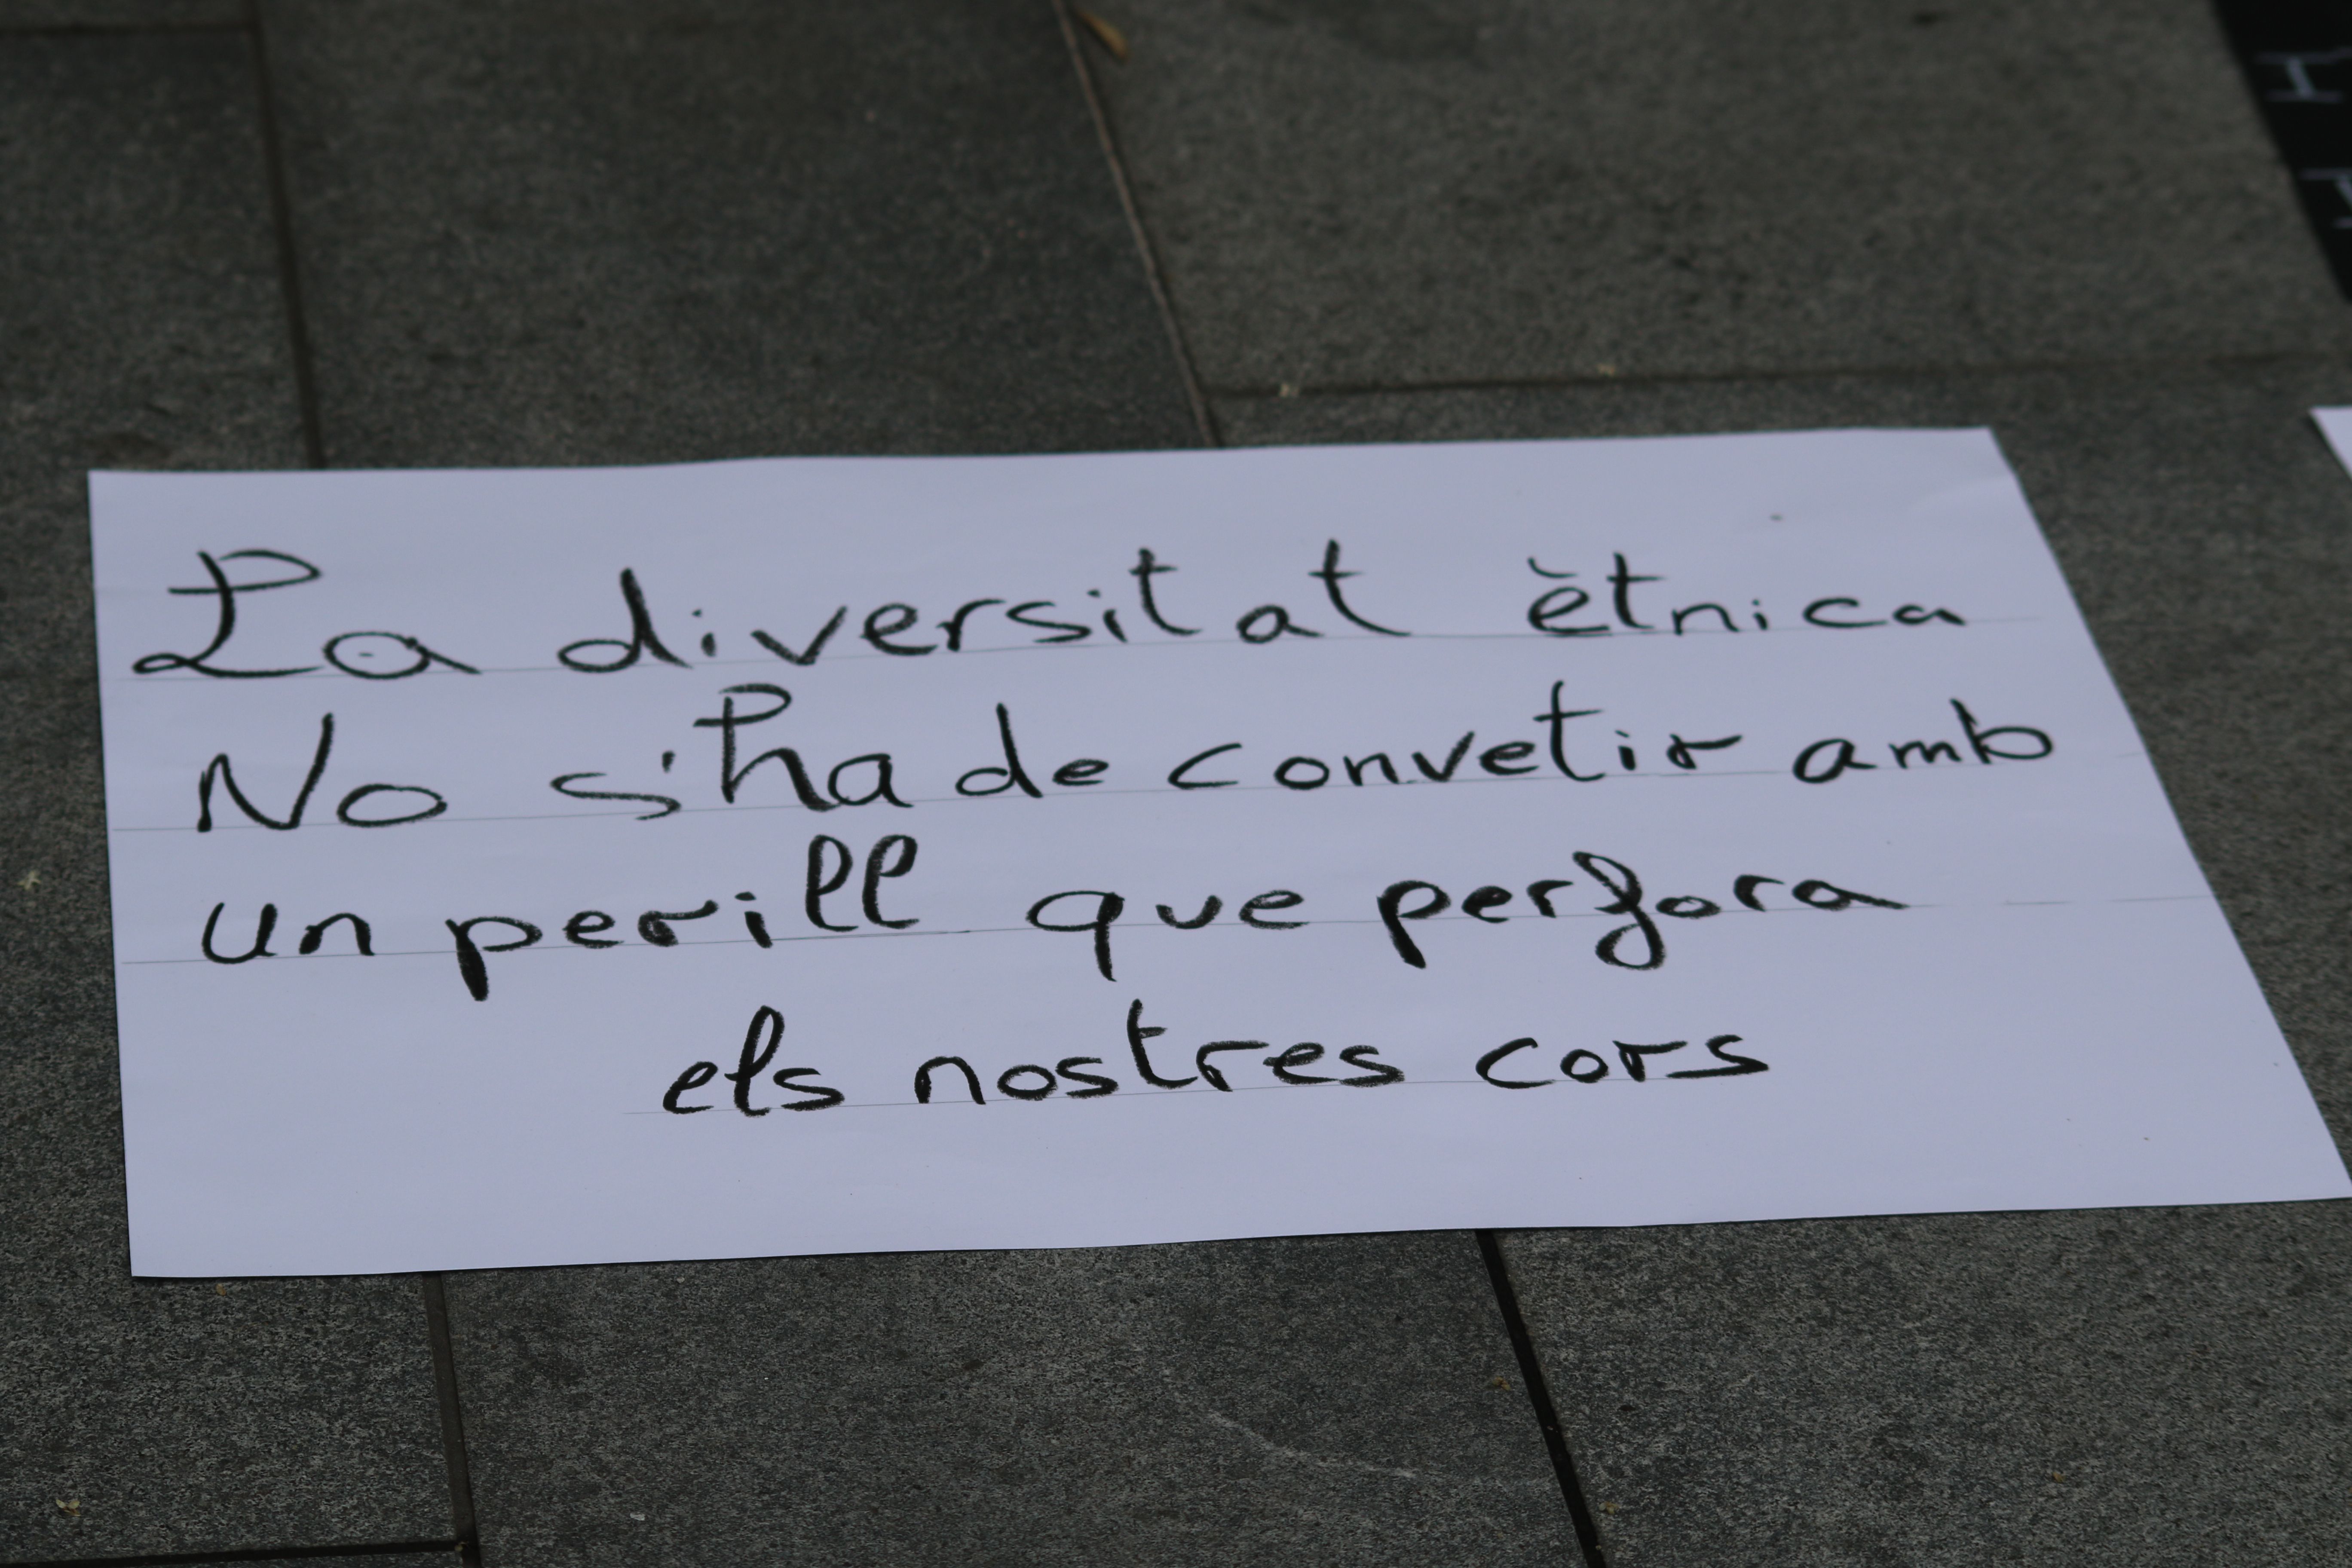 La diversitat ètnica
No s'ha de convetir amb
un perill que perfora
els nostres cors